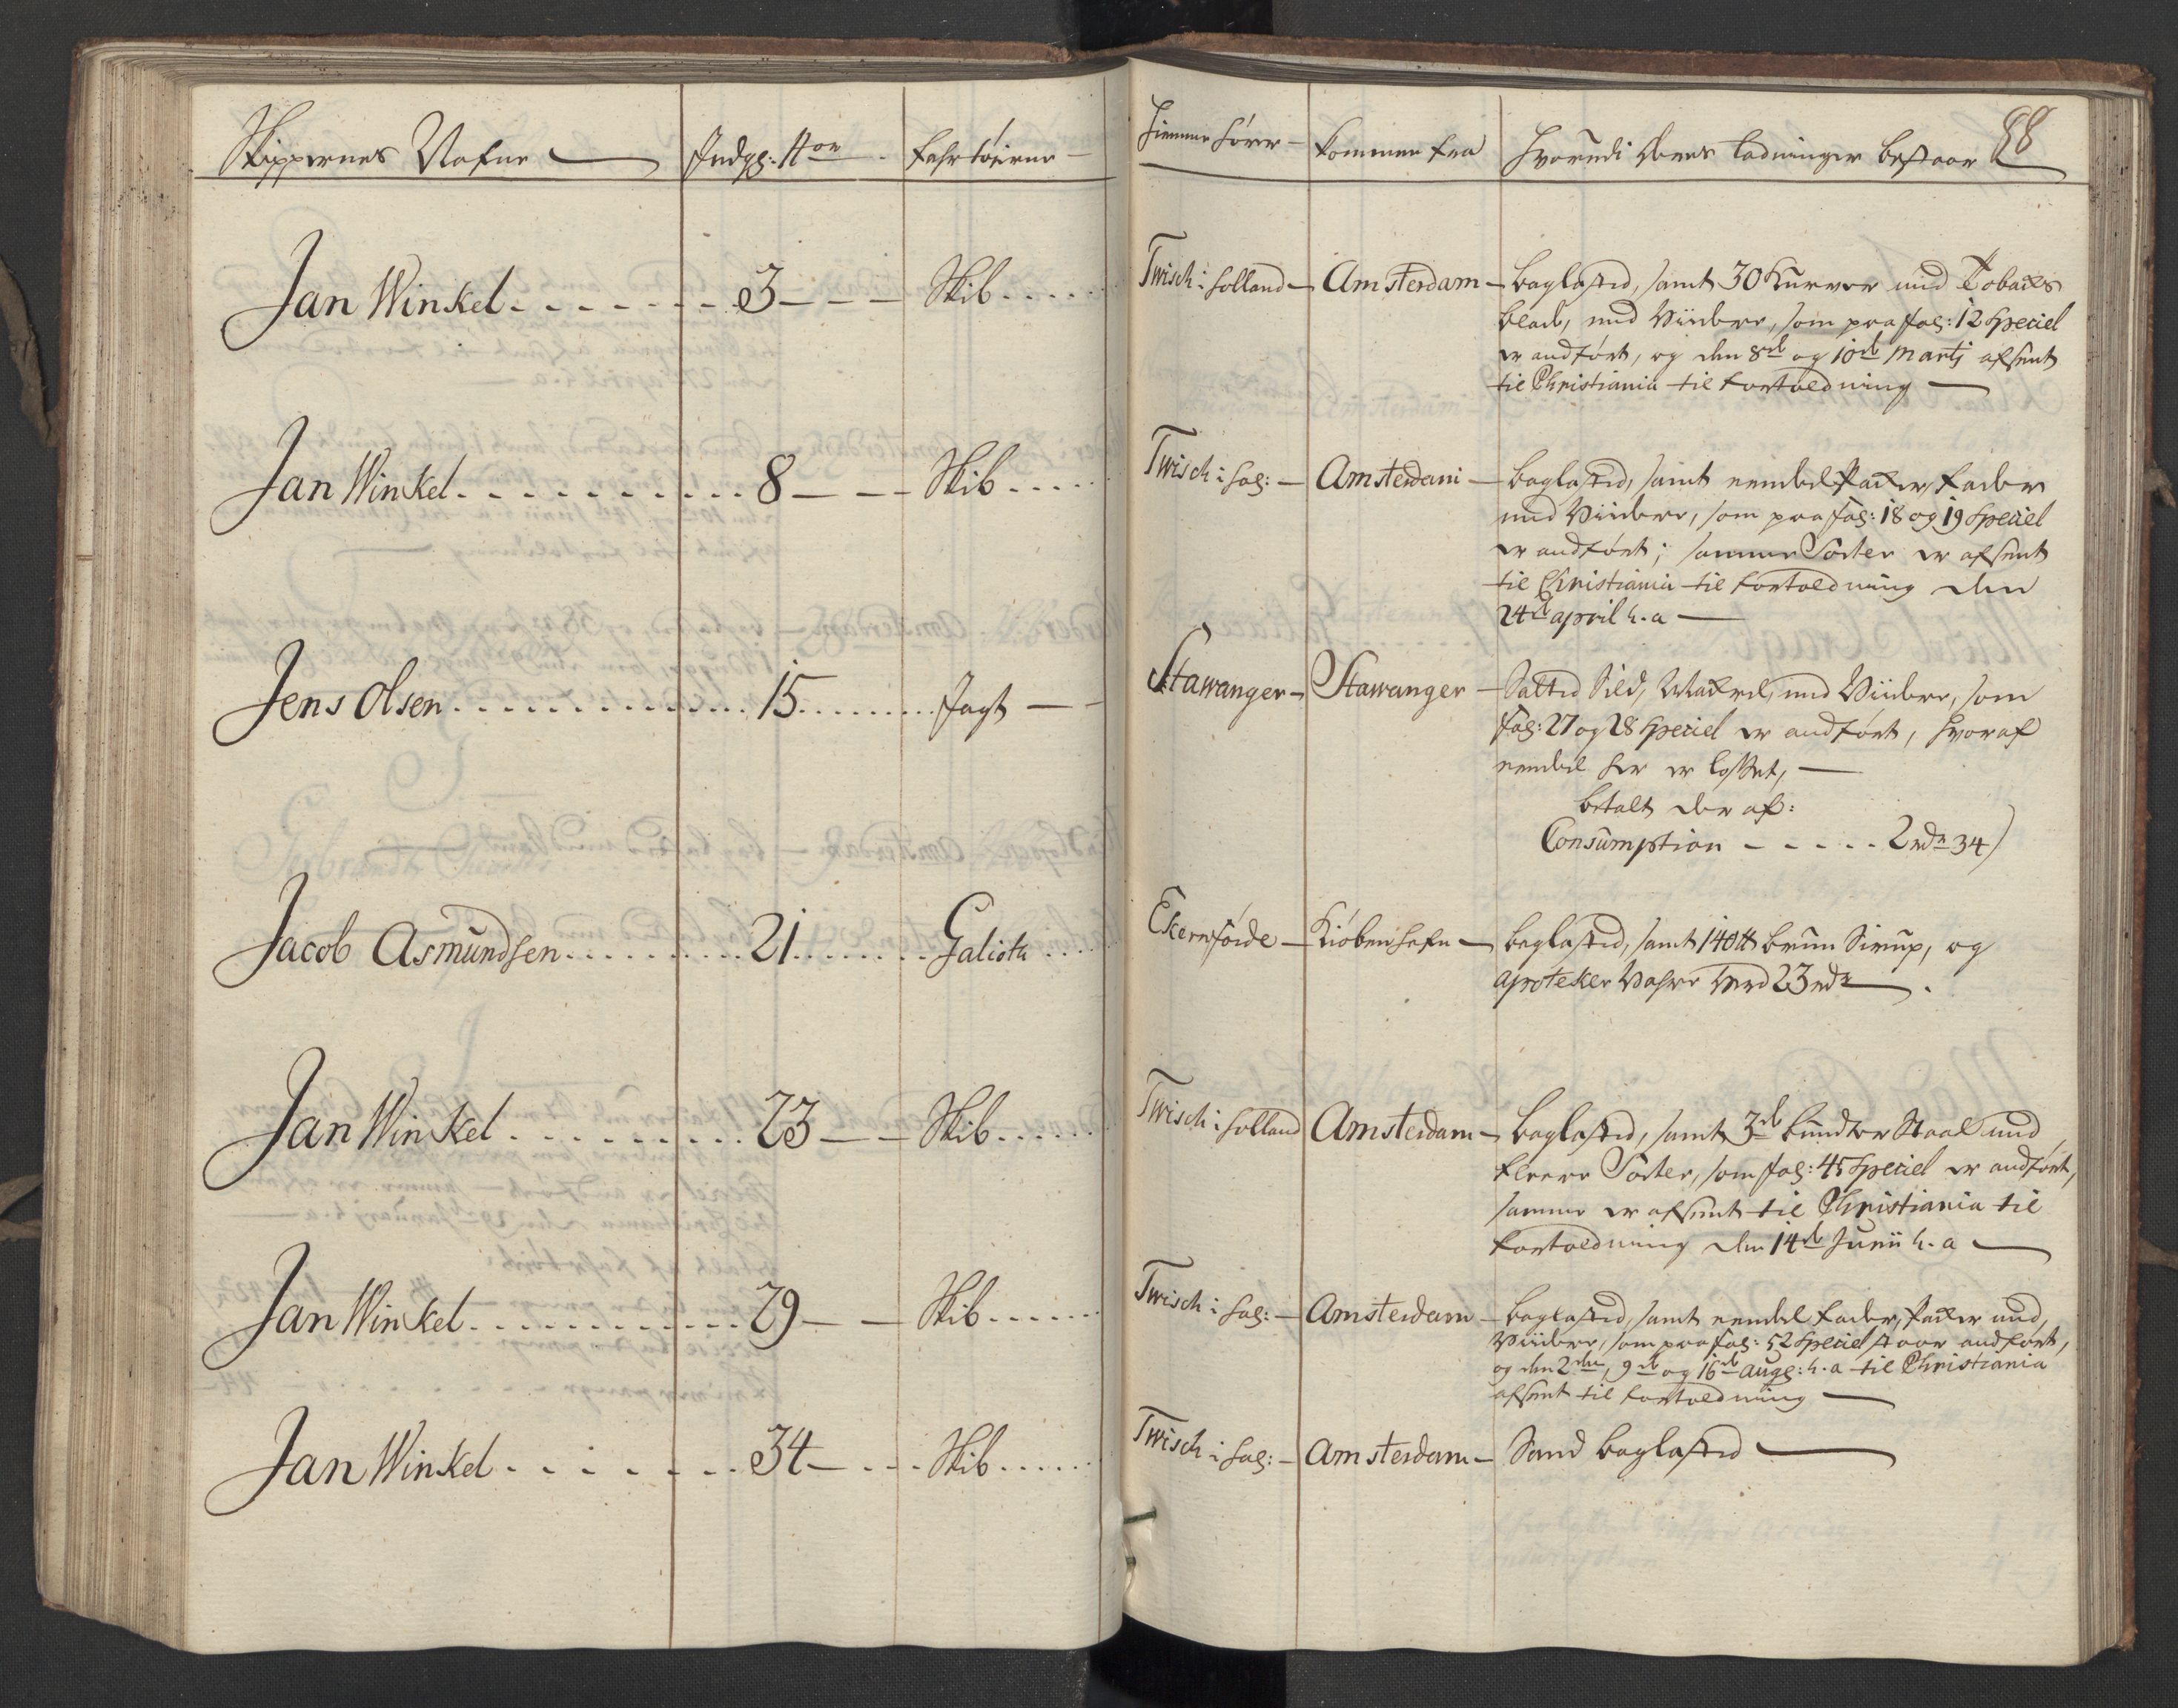 Skippernes Nafne Indgl: No Fahrtøierne Hiemme hörer Kommer fra Hvorudi Deres ladninger bestaar 88
Jan Winkel 3 Skib Twisch i Holland Amsterdam baglasted, samt 30 Kurver med Tobacks
blade, med Viidere, som paa fol: 12 Speciel
er andfört, og den 8de og 10de Martj afsent
til Christiania til fortoldning
Jan Winkel 8 Skib Twisch i Hol: Amsterdam baglasted, samt eendeel Packer, Fader
med Viidere, som paa fol: 18 og 19 Speciel
er andfört; samme Sorter er afsent
til Christiania til fortoldning den
24de april h. a
Jens Olsen 15 Jagt Stawanger Stawanger Salted Sild, Mackrel, med Viidere, som
fol: 27 og 28 Speciel er andfört, hvoraf
eendeel her er losset,
betalt der af:
Consumption 2 rdr 34
Jacob Asmundsen 21 Galioth Ekernförde Kiöbenhafn baglasted, samt 140 tt brun Sirup, og
apoteker Vahre Verd 23 rdr
Jan Winkel 23 Skib Twisch i Holland Amsterdam baglasted, samt 3de bundter Staal med
fleere Sorter, som fol: 45 Speciel er andfört,
samme er afsent til Christiania til
fortoldning den 14de Junii h. a
Jan Winkel 29 Skib Twisch i Hol: Amsterdam baglasted, samt eendeel Fader, Packer med
Viidere, som paa fol: 52 Speciel staar andfört,
og den 2den, 9de og 16de Aug: h. a til Christiania
afsent til fortoldning
Jan Winkel 34 Skib Twisch i Hol: Amsterdam Sand baglasted